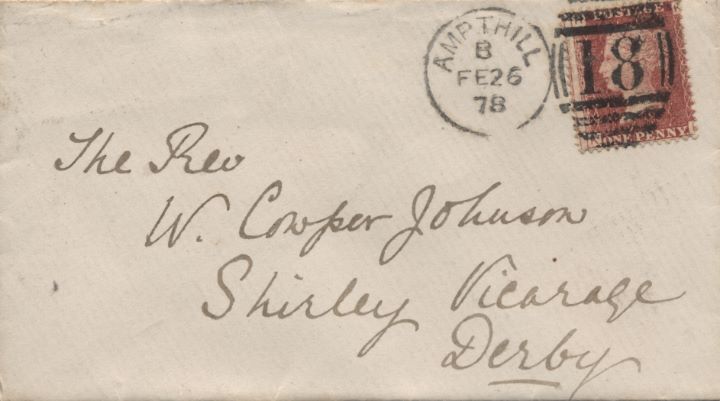 AMPTHILL
B
FE26
78
POSTAGE
18
ONE PENNY
The Rev
W. Cowper Johnson
Shirley Vicarage
Derby